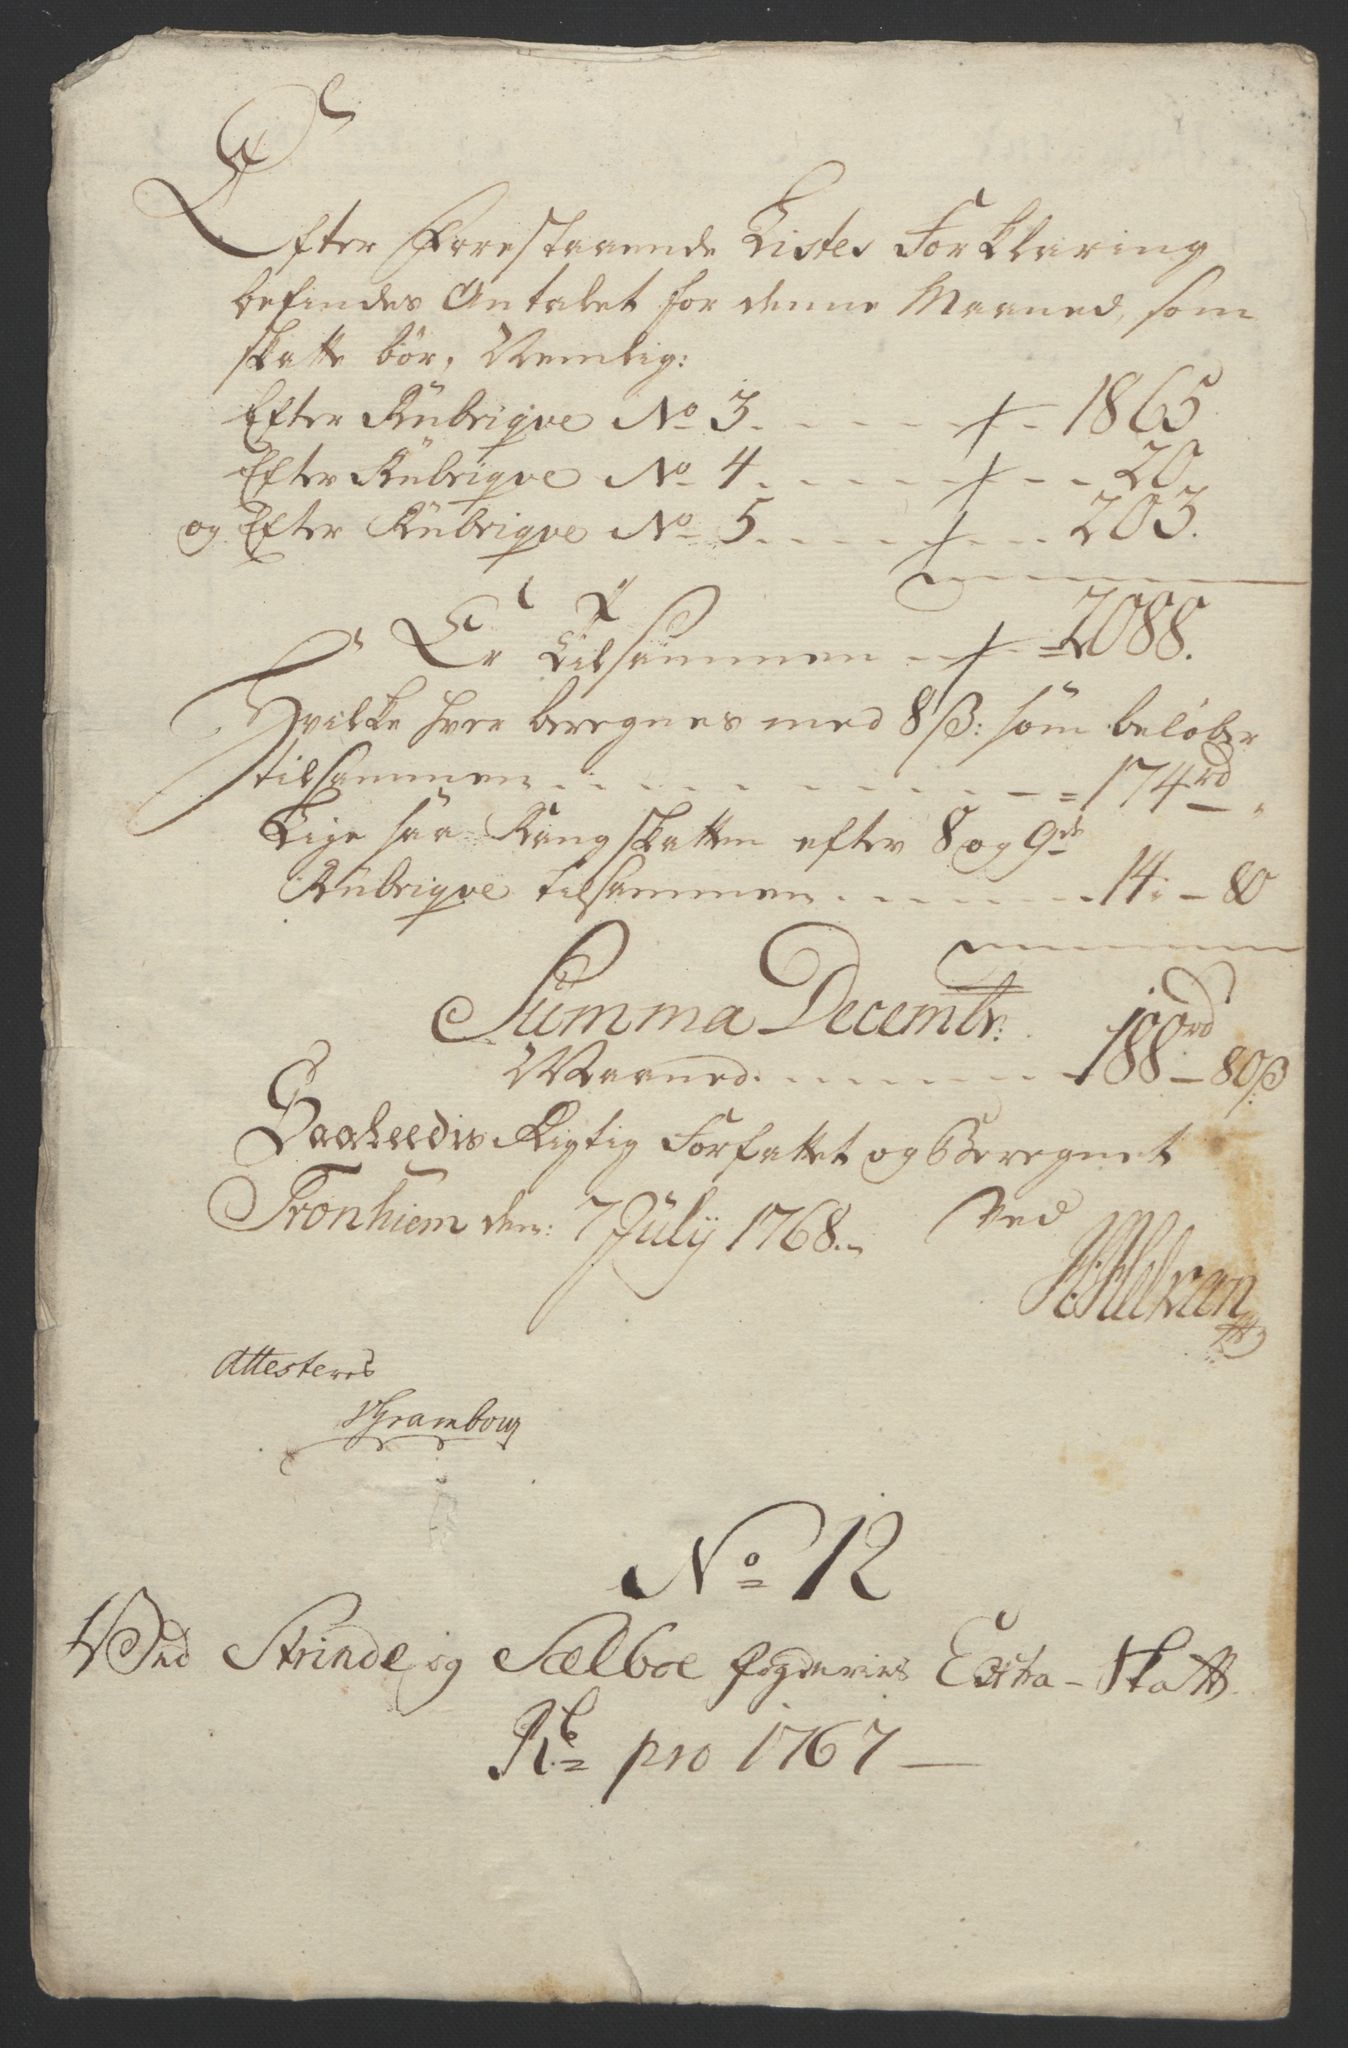 Efter Forestaaende Listes Forklaring
befindes Antalet for denne Maaned, som
skatte bör, Nemlig:
Efter Rübriqve No 3. 1865
Efter Rübriqve No 4. 20
og Efter Rübriqve No 5. 203.
Er Tilsammen 2088.
Hvilke hver beregnes med 8 ß: som beløber
tilsammen 174 rd
Lige saa Rang skatten efter 8 og 9de
Rübriqve tilsammen 14: 80
Summa Decembr:
Maaned. 188 rd 80 ß
Saaleedis Rigtig Forfattet og Beregnet
Tronhiem den: 7 Julij 1768. Ved
Attesteres
No 12
Ved Strinde og Sælboe fogderies Extra-Skatts
pro 1767